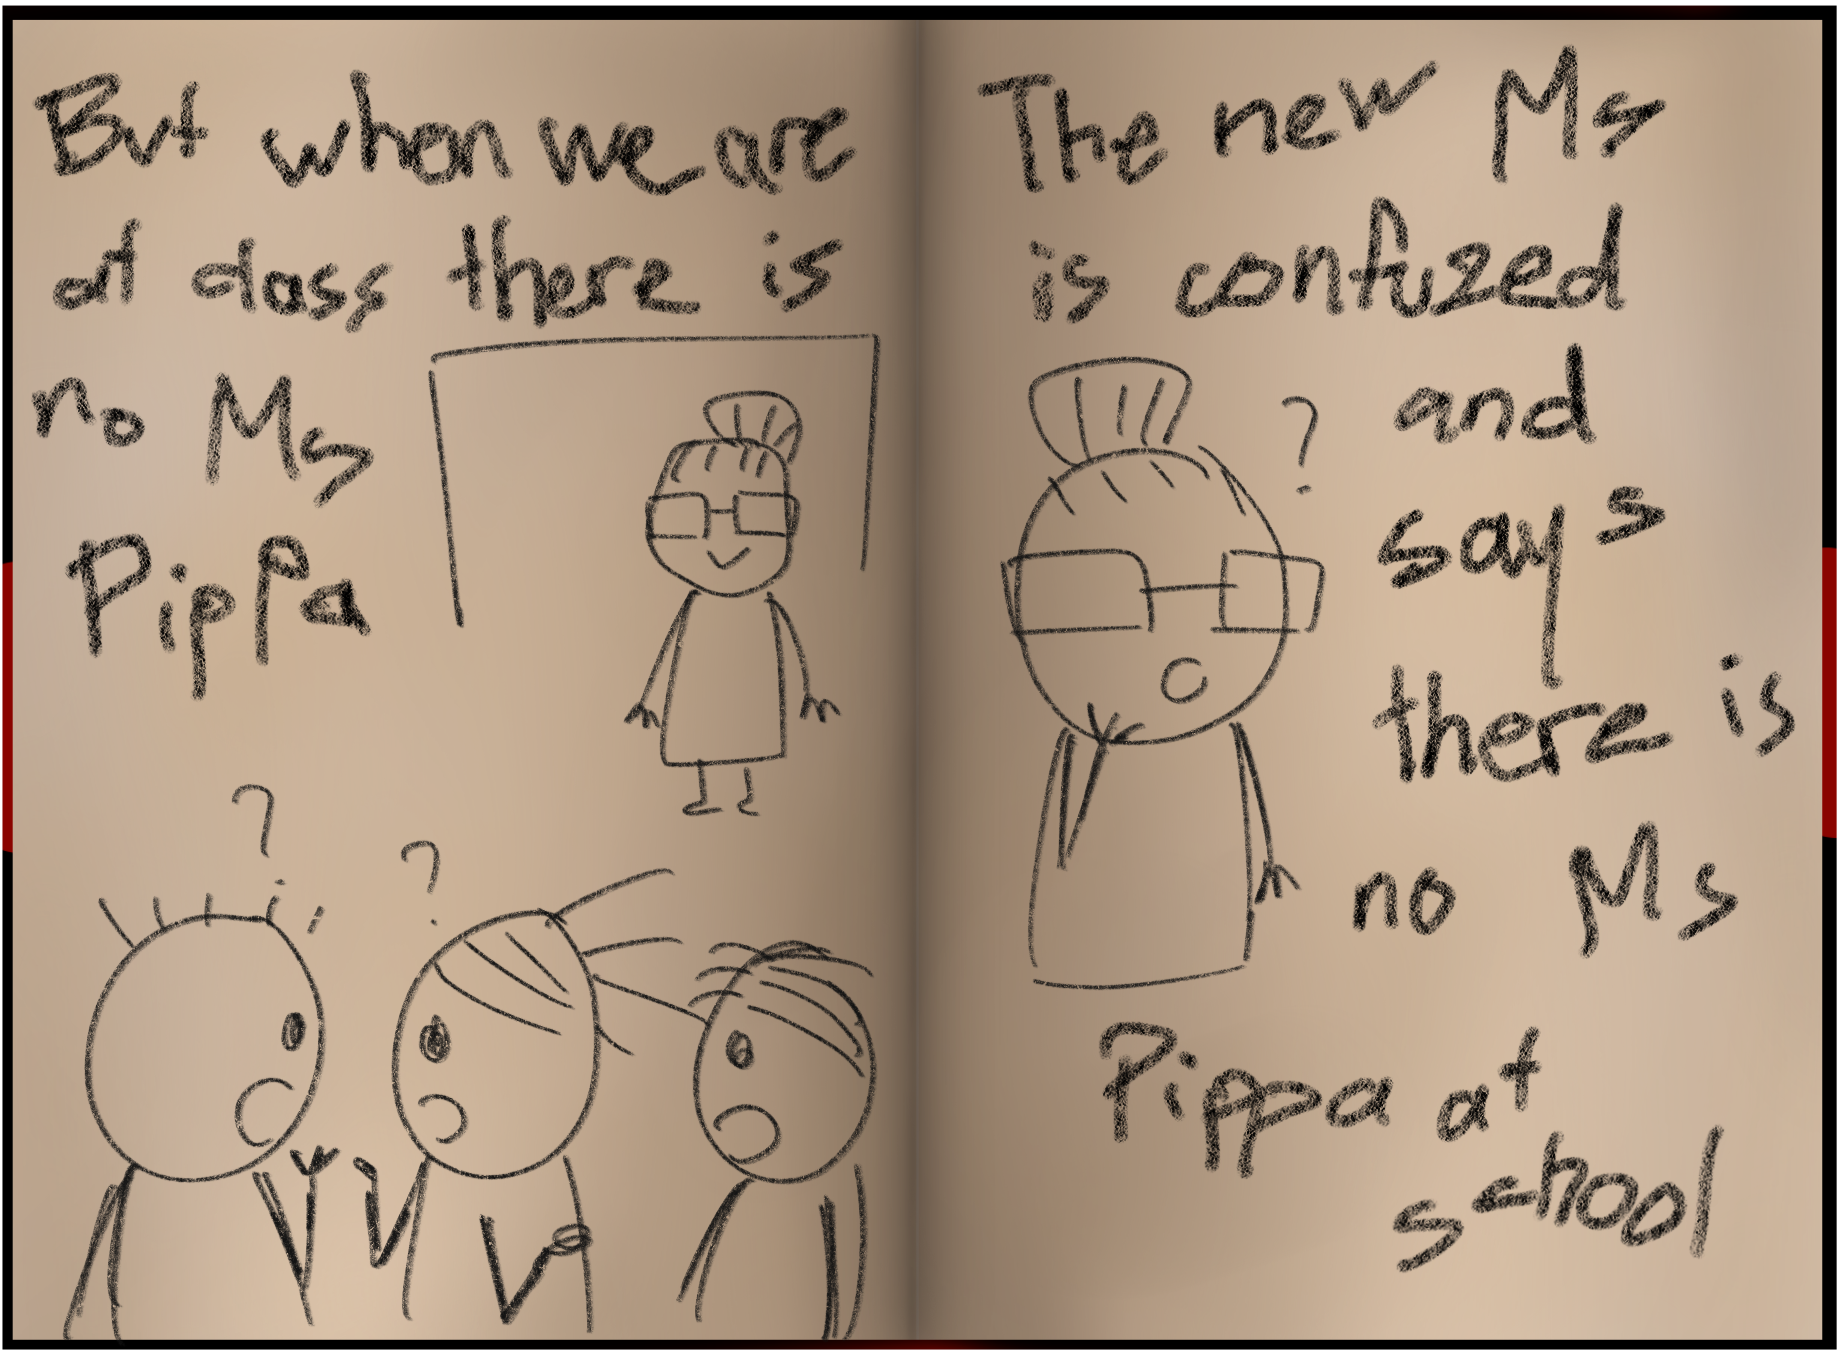 But when we are
at class there is
no Ms
Pippa
?
?
The new Ms
is confuzed
?
and
says
there is
no Ms
Pippa at
school